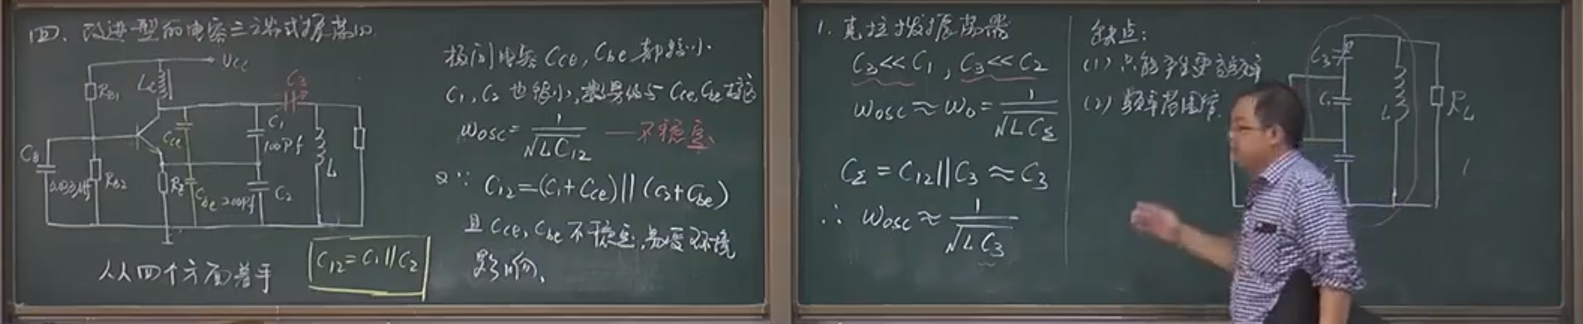 四、改进型的电容三点式振荡器
VCC
RB1
LC
C3
Cce
C1
100Pf
L
CB
0.033μf
RB2
RE
Cbe
200Pf
C2
从四个方面着手
C12=C1∥C2
极间电容Cce,Cbe都较小
C1,C2也很小,数量级与Cce,Cbe接近
ωosc=1/√LC12 —不稳定
又∵ C12=(C1+Cce)∥(C2+Cbe)
且Cce,Cbe不稳定,易受环境
影响、
1.克拉泼振荡器
C3<<C1,C3<<C2
ωosc≈ω0=1/√LCΣ
CΣ=C12∥C3≈C3
∴ ωosc≈1/√LC3
缺点:
(1)只能产生更高频率
(2)频率范围窄
C3
C1
L
RL